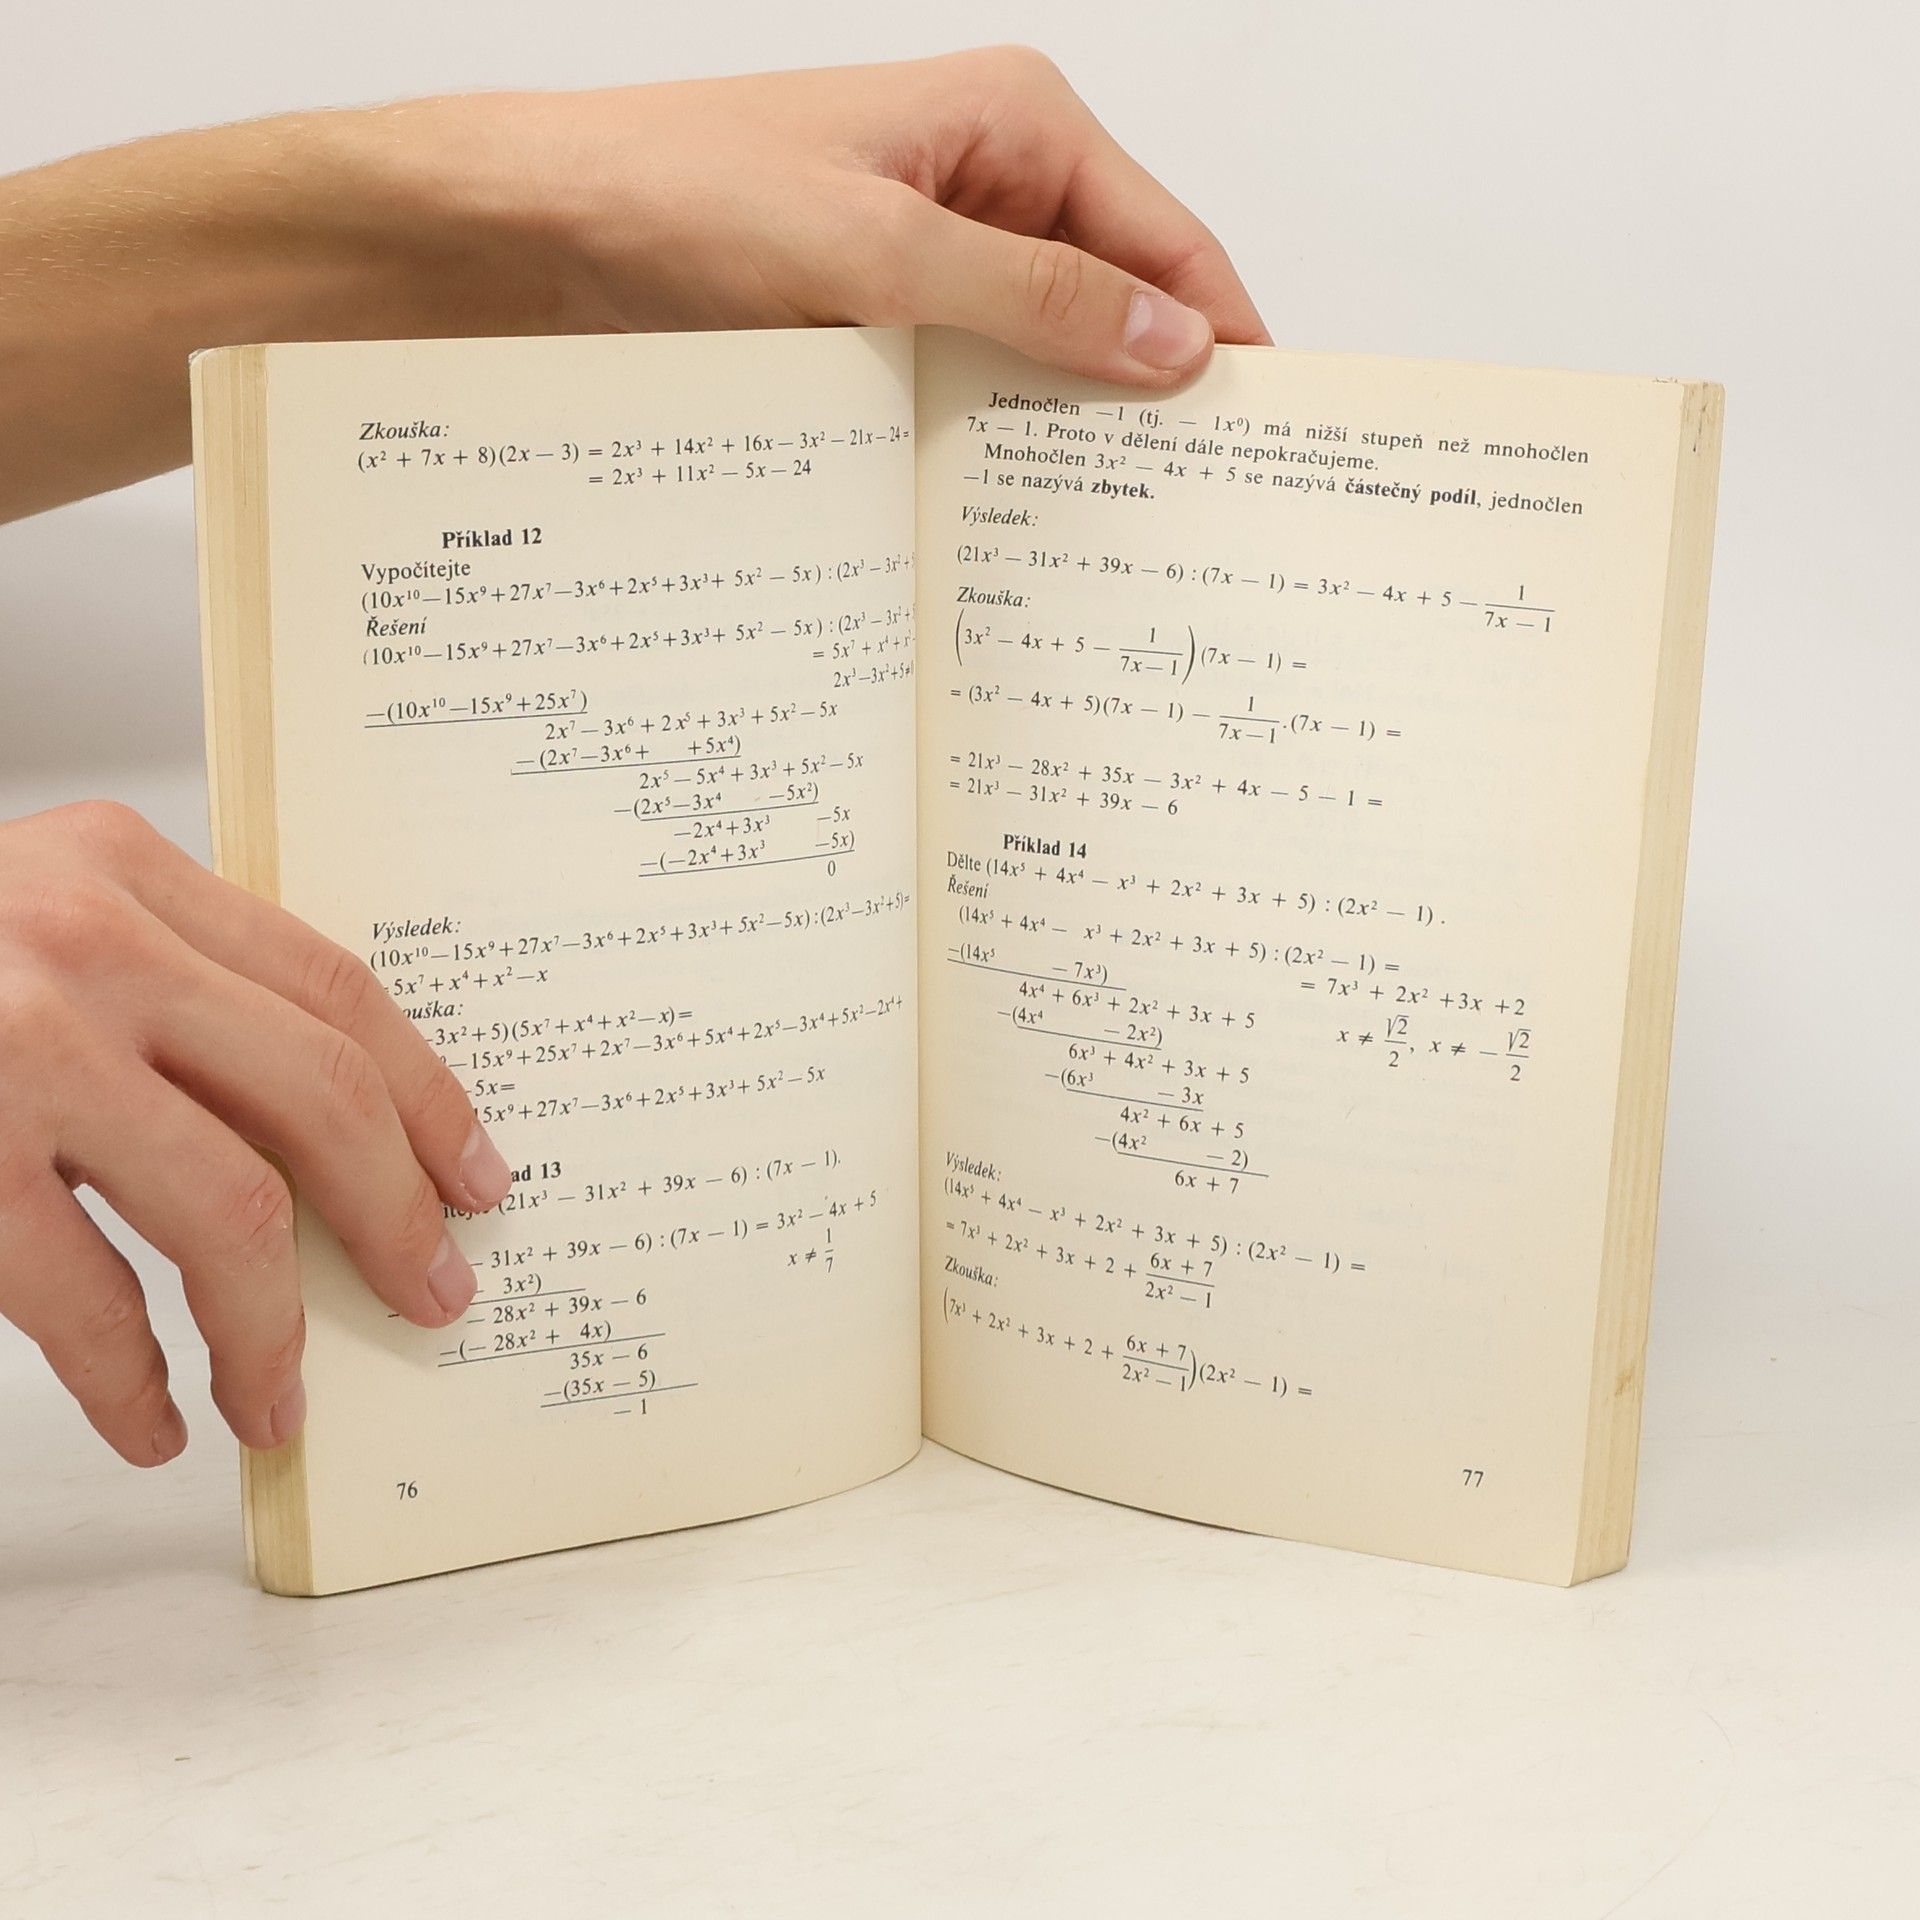 Zkouška:
(x² + 7x + 8)(2x — 3) = 2x³ + 14x² + 16x — 3x² — 21x — 24 =
= 2x³ + 11x² — 5x — 24
Příklad 12
Vypočítejte
(10x¹⁰—15x⁹+27x⁷—3x⁶+2x⁵+3x³+ 5x² — 5x) : (2x³ — 3x² +
Řešení
(10x¹⁰—15x⁹+27x⁷—3x⁶+2x⁵+3x³+ 5x² — 5x) : (2x³ — 3x² +
= 5x⁷ + x⁴ + x²
2x³—3x²+5≠
—(10x¹⁰—15x⁹+25x⁷)
2x⁷ — 3x⁶ + 2x⁵ + 3x³ + 5x² — 5x
—(2x⁷—3x⁶+ +5x⁴)
2x⁵ — 5x⁴ + 3x³ + 5x² — 5x
—(2x⁵—3x⁴ —5x²)
—2x⁴+3x³ —5x
—(—2x⁴+3x³ —5x)
0
Výsledek:
(10x¹⁰—15x⁹+27x⁷—3x⁶+2x⁵+3x³+ 5x²—5x):(2x³—3x²+5)=
5x⁷+x⁴+x²—x
ouška:
—3x²+5)(5x⁷+x⁴+x²—x)=
—15x⁹+25x⁷+2x⁷—3x⁶+5x⁴+2x⁵—3x⁴+5x²—2x⁴+
—5x=
15x⁹+27x⁷—3x⁶+2x⁵+3x³+ 5x²—5x
ad 13
(21x³ — 31x² + 39x — 6) : (7x — 1).
— 31x² + 39x — 6) : (7x — 1) = 3x² — 4x + 5
x ≠ 1/7
3x²)
— 28x² + 39x — 6
—(— 28x² + 4x)
35x — 6
—(35x — 5)
— 1
76
Jednočlen —1 (tj. — 1x⁰) má nižší stupeň než mnohočlen
7x — 1. Proto v dělení dále nepokračujeme.
Mnohočlen 3x² — 4x + 5 se nazývá částečný podíl, jednočlen
—1 se nazývá zbytek.
Výsledek:
(21x³ — 31x² + 39x — 6) : (7x — 1) = 3x² — 4x + 5 — 1/(7x — 1)
Zkouška:
(3x² — 4x + 5 — 1/(7x — 1))(7x — 1) =
= (3x² — 4x + 5)(7x — 1) — 1/(7x — 1).(7x — 1) =
= 21x³ — 28x² + 35x — 3x² + 4x — 5 — 1 =
= 21x³ — 31x² + 39x — 6
Příklad 14
Dělte (14x⁵ + 4x⁴ — x³ + 2x² + 3x + 5) : (2x² — 1) .
Řešení
(14x⁵ + 4x⁴ — x³ + 2x² + 3x + 5) : (2x² — 1) =
= 7x³ + 2x² +3x +2
—(14x⁵ — 7x³)
4x⁴ + 6x³ + 2x² + 3x + 5
x ≠ √2/2, x ≠ — √2/2
—(4x⁴ — 2x²)
6x³ + 4x² + 3x + 5
—(6x³ — 3x
4x² + 6x + 5
—(4x² — 2)
6x + 7
Výsledek:
(14x⁵ + 4x⁴ — x³ + 2x² + 3x + 5) : (2x² — 1) =
= 7x³ + 2x² + 3x + 2 + (6x + 7)/(2x² — 1)
Zkouška:
(7x³ + 2x² + 3x + 2 + (6x + 7)/(2x² — 1))(2x² — 1) =
77